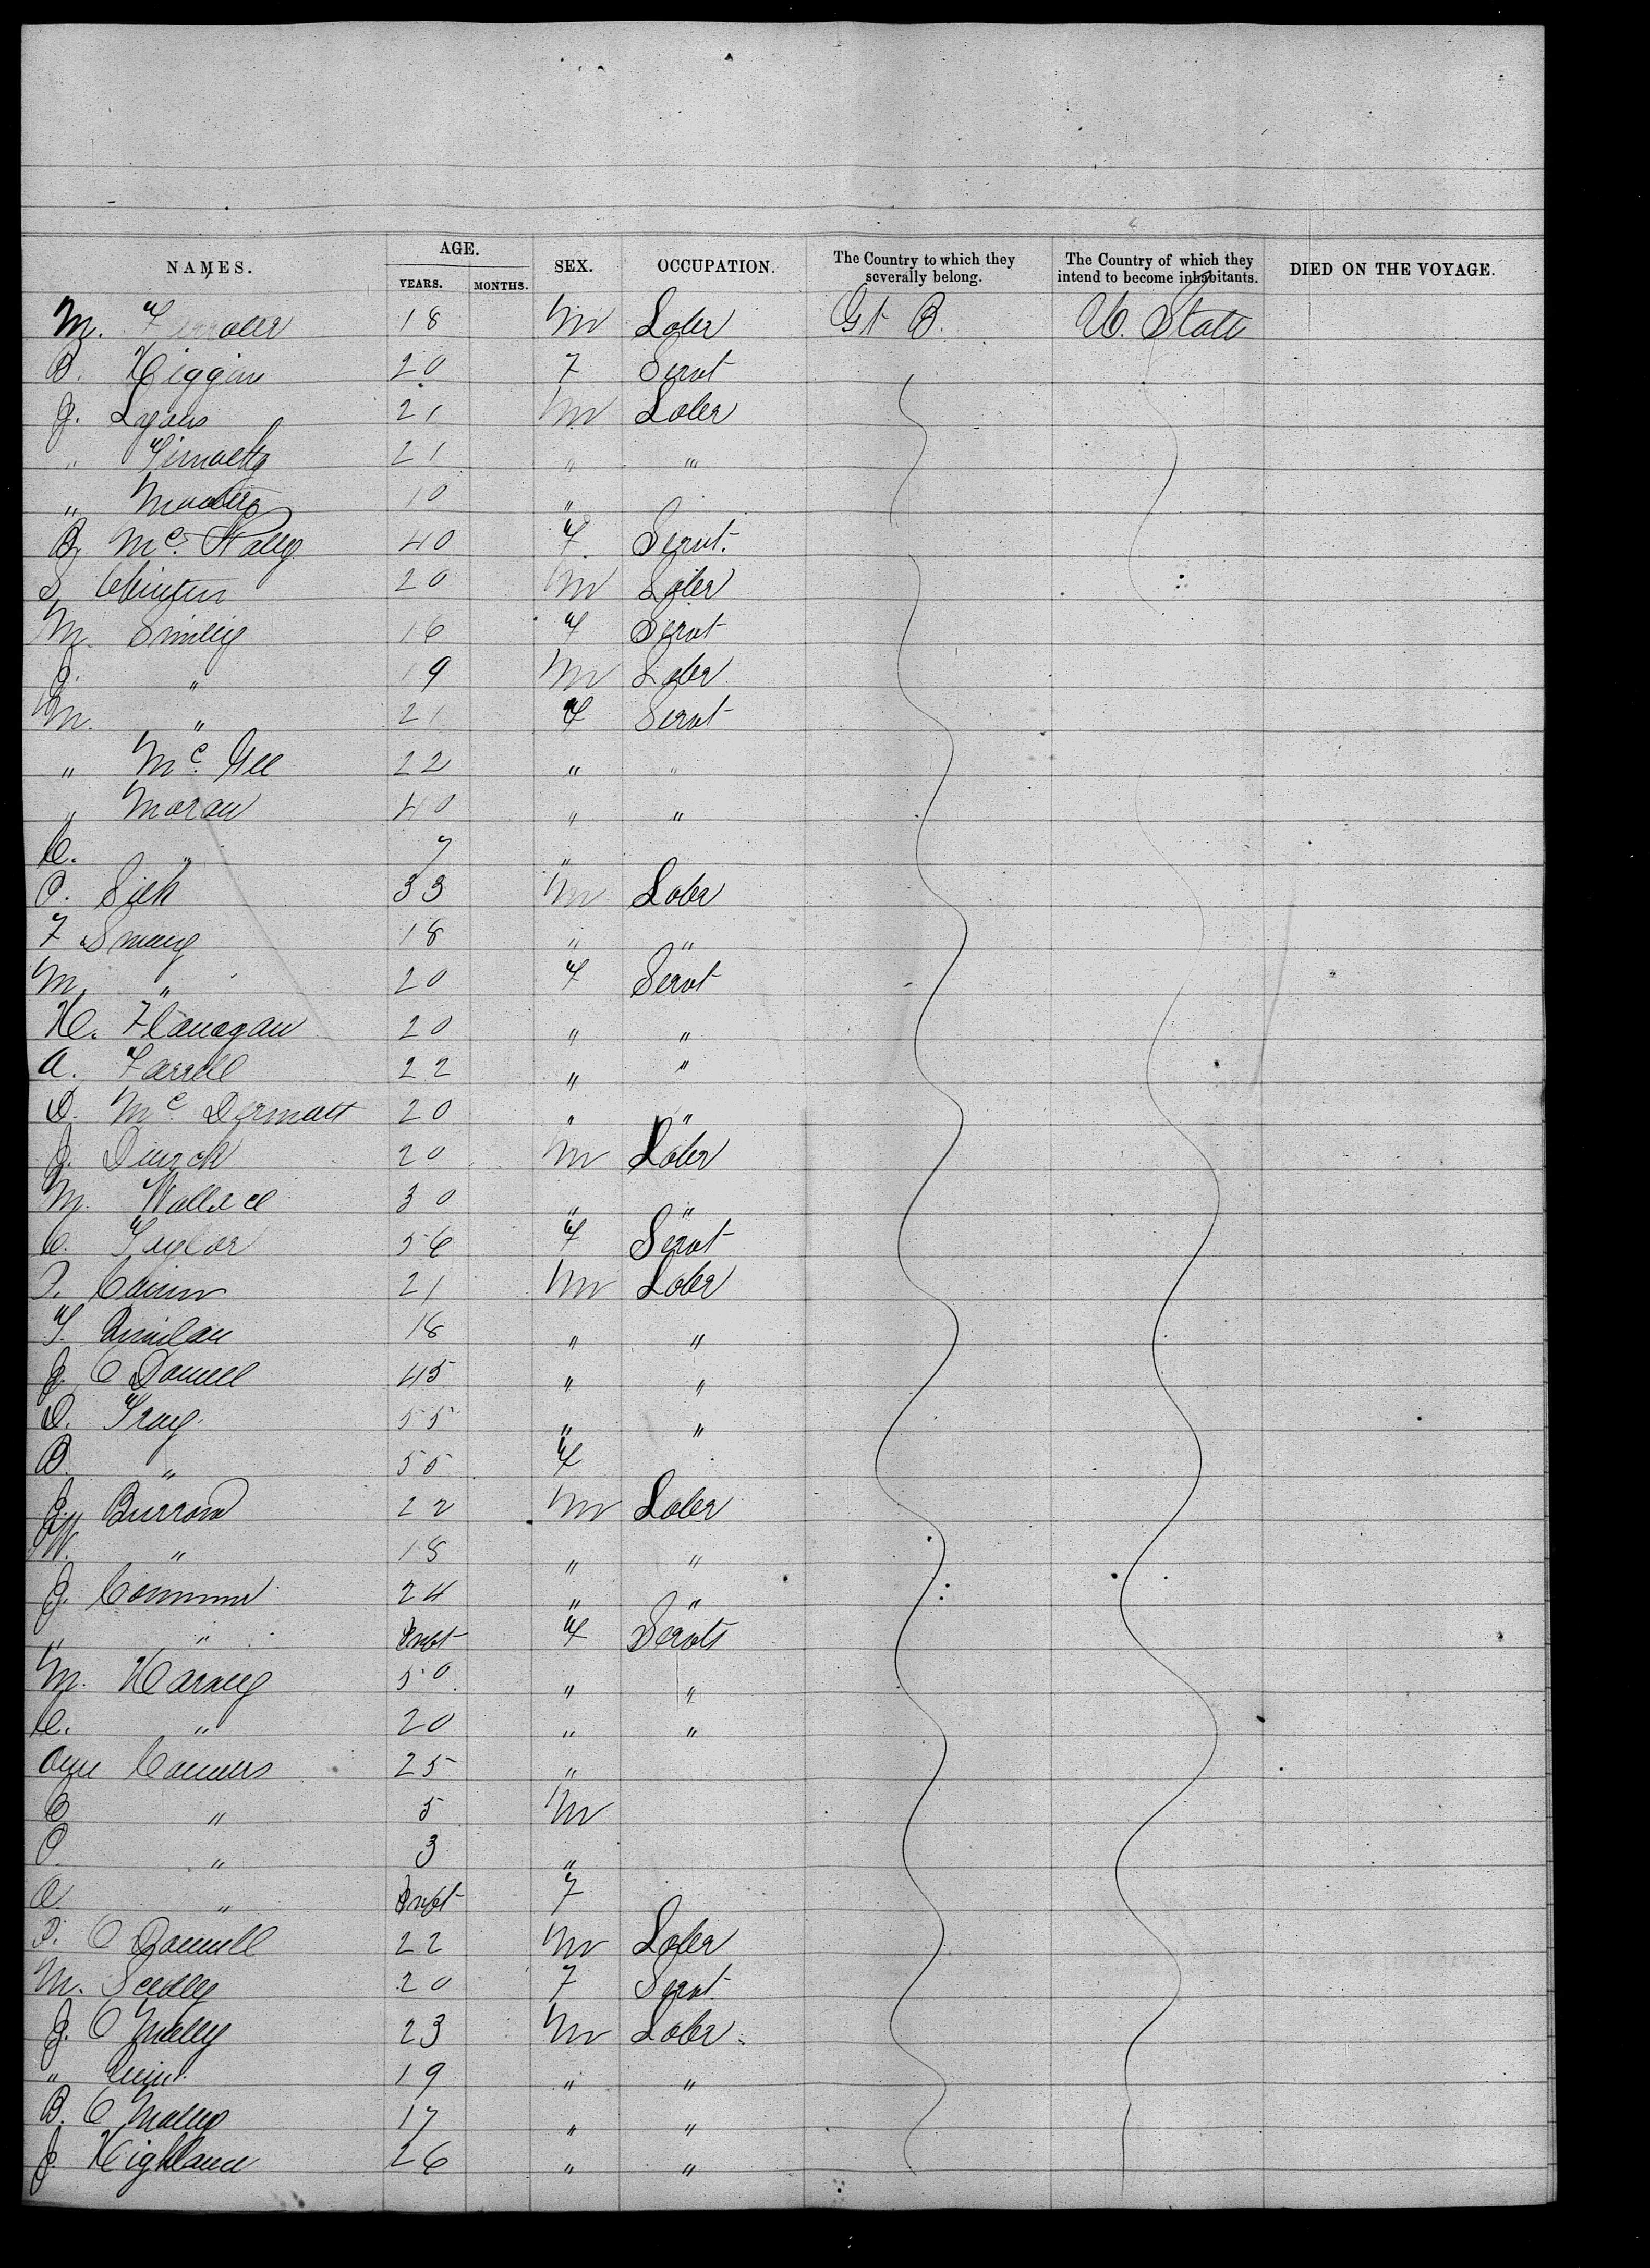 NAMES. AGE. YEARS. MONTHS. SEX. OCCUPATION. The Country to which they severally belong. The Country of which they intend to become inhabitants. DIED ON THE VOYAGE.
M. 18 M Laber Gt B. U. State
B. Higgins 20 F Servt
J. Lyons 21 M Laber
" 21 " "
" 10 "
B. Mc. Nally 40 F Servt.
S. 20 M Laber
M. Smiley 16 F Servt
" 19 M Laber
M. " 21 F Servt
" Mc. Gee 22 " "
" Moran 40 " "
C. " 7 "
P. 33 M Laber
F 18 " "
M. " 20 F Servt
H. Flanagan 20 " "
A. Farrell 22 " "
D. Mc. Dermatt 20 " "
J. 20 M Laber
M. Wallace 30 " "
C. Taylor 56 F Servt
21 M Laber
T. Quinlan 18 " "
J. O Donnell 45 " "
D. 55 " "
B. " 55 F
J. Burrows 22 M Laber
W. " 18 " "
J. 24 " "
" " Inft F Servts
M. Harney 50 " "
C. " 20 " "
Ann Conners 25 "
C " 5 M
P. " 3 "
A. " Inft F
P. O Donnell 22 M Laber
M. 20 F Servt
J. O Mally 23 M Laber
" 19 " "
B. O Mally 17 " "
J. Highland 26 " "